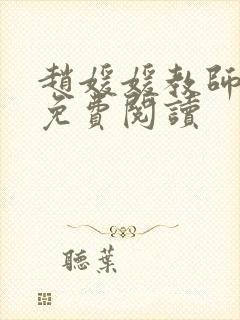 趙媛媛教師
免費閱讀
聽葉